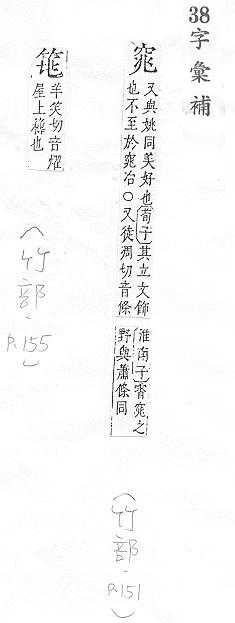 38字彙補
窕
又與姚同美好也荀子其立文飾
也不至於窕冶○又徒凋切音條
淮南子宵窕之
野與蕭條同
(竹部.
P.151)
笔
羊笑切音燿
屋上
也
(竹部.
P.155)